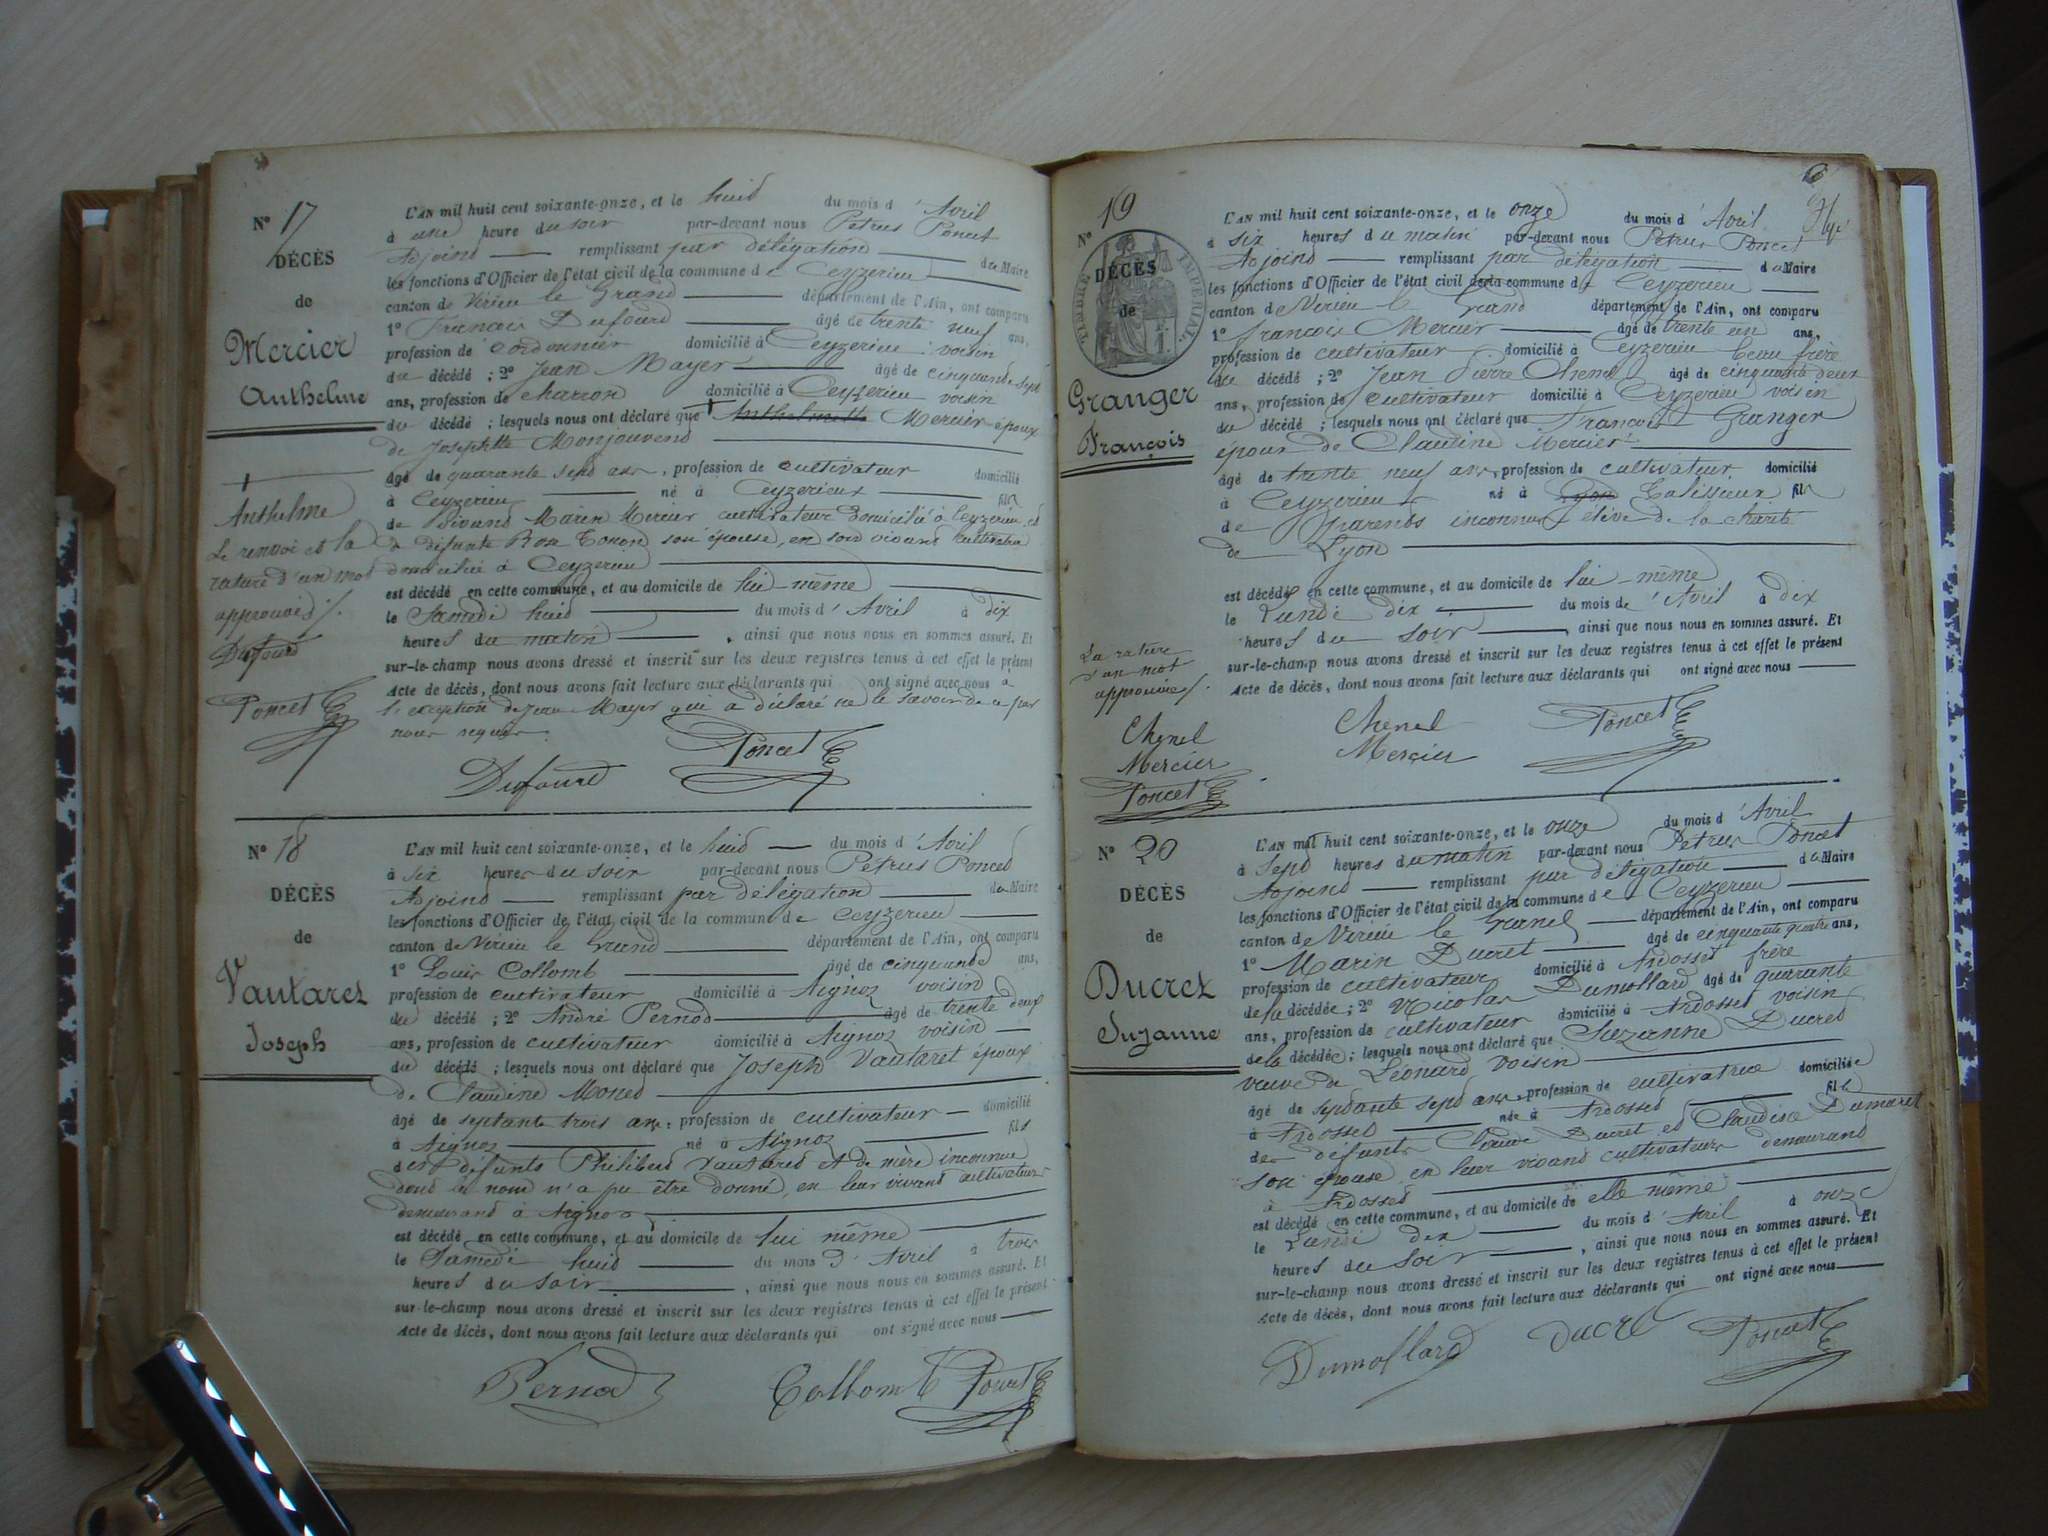 Nº 17
DÉCÈS
de
Mercier
Anthelme
L'AN mil huit cent soixante-onze, et le huit du mois d'Avril
à une heure du soir par-devant nous Petrus Poncet
Adjoint remplissant par délégation du Maire
les fonctions d'Officier de l'état civil de la commune de Ceyzerieu
canton de Virieu le Grand département de l'Ain, ont comparu
1º Francois Dufourd âgé de trente neuf ans,
profession de cordonnier domicilié à Ceyzerieu voisin
du décédé ; 2º Jean Mayer âgé de cinquante sept
ans, profession de charron domicilié à Ceyzerieu voisin
du décédé ; lesquels nous ont déclaré que Mercier époux
de Josephte Monjouvend
âgé de quarante sept ans, profession de cultivateur domicilié
à Ceyzerieu né à Ceyzerieux fils
de vivant Marin Mercier cultivateur domicilié à Ceyzerieu et
de défunte Rose Tonon son épouse, en son vivant cultivatrice
domiciliée à Ceyzerieu
est décédé en cette commune, et au domicile de lui-même
le Samedi huit du mois d'Avril à dix
heures du matin, ainsi que nous nous en sommes assuré. Et
sur-le-champ nous avons dressé et inscrit sur les deux registres tenus à cet effet le présent
Acte de décès, dont nous avons fait lecture aux déclarants qui ont signé avec nous a
l'exception de Jean Mayer qui a déclaré ne le savoir de ce par
nous requis.
Anthelme
Le renvoi et la
rature d'un mot
approuvés/.
Dufourd
Poncet
Dufourd Poncet
Nº 18
DÉCÈS
de
Vautaret
Joseph
L'AN mil huit cent soixante-onze, et le huit du mois d'Avril
à six heures du soir par-devant nous Petrus Poncet
Adjoint remplissant par délégation du Maire
les fonctions d'Officier de l'état civil de la commune de Ceyzerieu
canton de Virieu le Grand département de l'Ain, ont comparu
1º Louis Collomb âgé de cinquante ans,
profession de cultivateur domicilié à Aignoz voisin
du décédé ; 2º André Pernod âgé de trente deux
ans, profession de cultivateur domicilié à Aignoz voisin
du décédé ; lesquels nous ont déclaré que Joseph Vautaret époux
de Claudine Monet
âgé de septante trois ans, profession de cultivateur domicilié
à Aignoz né à Aignoz fils
des défunts Philibert Vautaret et de mère inconnue
dont le nom n'a pu être donné, en leur vivant cultivateurs
demeurand à Aignoz
est décédé en cette commune, et au domicile de lui même
le Samedi huit du mois d'Avril à trois
heures du soir, ainsi que nous nous en sommes assuré. Et
sur-le-champ nous avons dressé et inscrit sur les deux registres tenus à cet effet le présent
Acte de décès, dont nous avons fait lecture aux déclarants qui ont signé avec nous
Pernod Collomb Poncet
6
Nº 19
DÉCÈS
de
TIMBRE IMPÉRIAL
Granger
François
L'AN mil huit cent soixante-onze, et le onze du mois d'Avril
à six heures du matin par-devant nous Petrus Poncet
Adjoint remplissant par délégation du Maire
les fonctions d'Officier de l'état civil de la commune de Ceyzerieu
canton de Virieu le Grand département de l'Ain, ont comparu
1º François Mercier âgé de trente un ans,
profession de cultivateur domicilié à Ceyzerieu beau frère
du décédé ; 2º Jean Pierre Chenel âgé de cinquante deux
ans, profession de cultivateur domicilié à Ceyzerieu voisin
du décédé ; lesquels nous ont déclaré que François Granger
époux de Claudine Mercier
âgé de trente neuf ans, profession de cultivateur domicilié
à Ceyzerieu né à Lyon Talissieux fils
de parents inconnus élève de la charité
de Lyon
est décédé en cette commune, et au domicile de lui-même
le Lundi dix du mois d'Avril à dix
heures du soir, ainsi que nous nous en sommes assuré. Et
sur-le-champ nous avons dressé et inscrit sur les deux registres tenus à cet effet le présent
Acte de décès, dont nous avons fait lecture aux déclarants qui ont signé avec nous
La rature
d'un mot
approuvée/.
Chenel
Mercier
Poncet
Chenel
Mercier Poncet
Nº 20
DÉCÈS
de
Ducret
Suzanne
L'AN mil huit cent soixante-onze, et le onze du mois d'Avril
à Sept heures du matin par-devant nous Petrus Poncet
Adjoint remplissant par délégation du Maire
les fonctions d'Officier de l'état civil de la commune de Ceyzerieu
canton de Virieu le Grand département de l'Ain, ont comparu
1º Marin Ducret âgé de cinquante quatre ans,
profession de cultivateur domicilié à Ardosset frère
de la décédée ; 2º Nicolas Dumollard âgé de quarante
ans, profession de cultivateur domicilié à Ardosset voisin
de la décédée ; lesquels nous ont déclaré que Suzanne Ducret
veuve de Léonard Voisin
âgé de septante sept ans, profession de cultivatrice domiciliée
à Ardosset née à Ardosset fille
des défunts Ducret et Claudine Dumaret
son épouse en leur vivant cultivateurs demeurand
à Ardosset
est décédé en cette commune, et au domicile de elle même
le Lundi dix du mois d'Avril à onze
heures du soir, ainsi que nous nous en sommes assuré. Et
sur-le-champ nous avons dressé et inscrit sur les deux registres tenus à cet effet le présent
Acte de décès, dont nous avons fait lecture aux déclarants qui ont signé avec nous
Dumollard Ducret Poncet